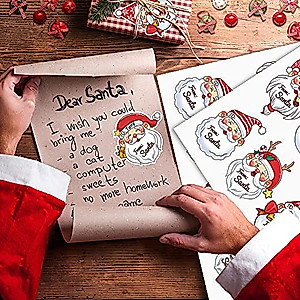 Dear Santa,
I wish you could
bring me
- a dog
- a cat
- computer
sweets
no more homework
game
from
Santa
from
Santa
from
Santa
from
Santa